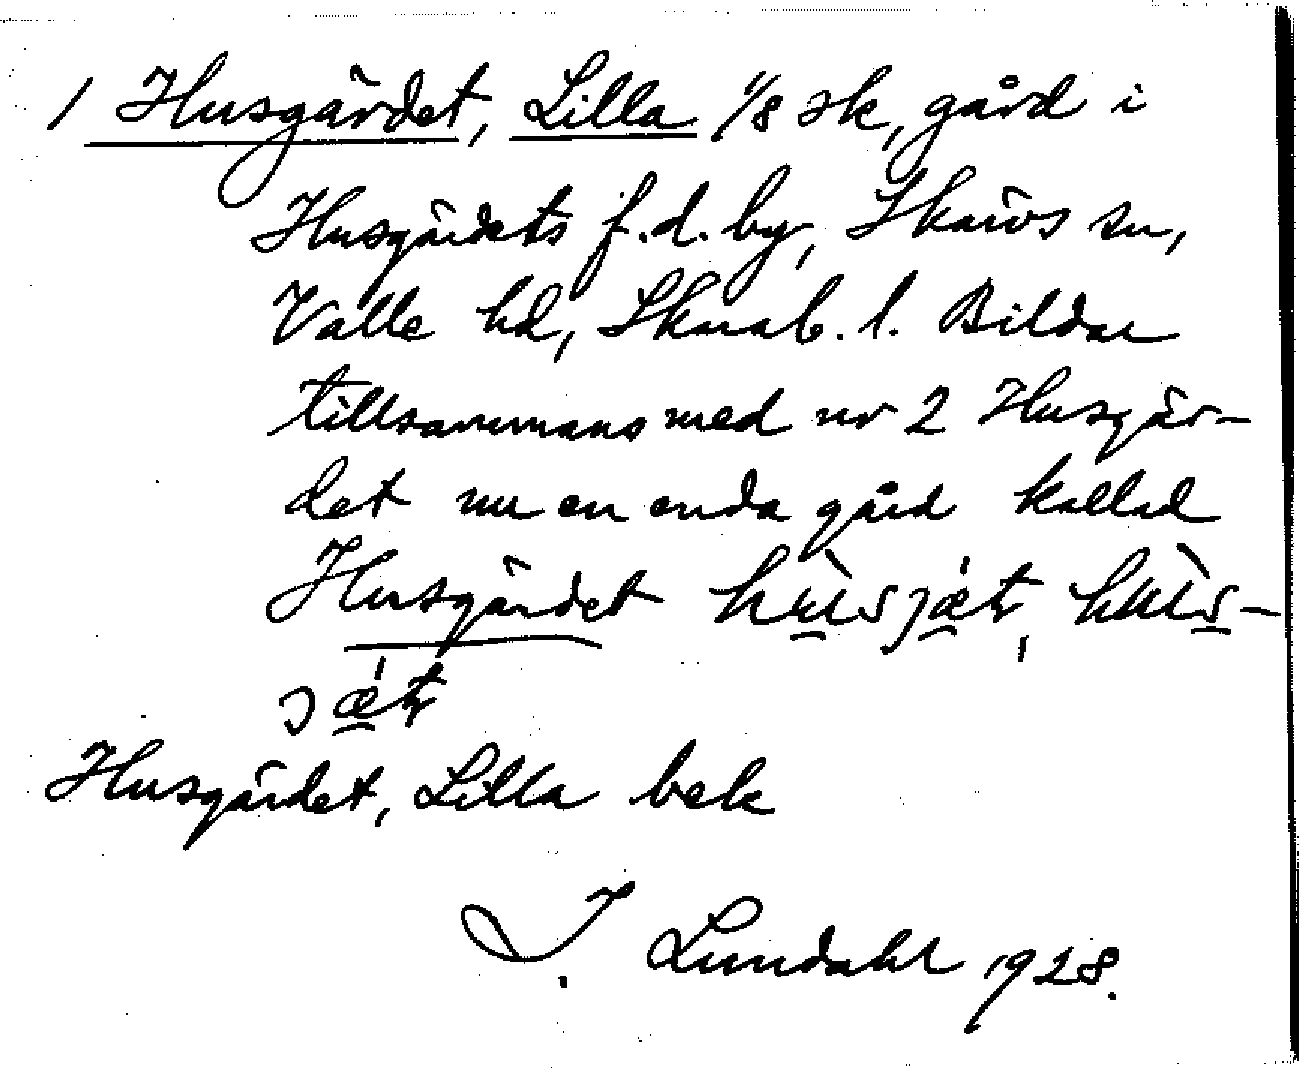 1 Husgärdet, Lilla 1/8 sk, gård i
Husgärdets f.d. by, Skärvs sn,
Valle hd, Skarab. l. Bildar
tillsammans med nr 2 Husgär-
det nu en enda gård kallad
Husgärdet
Husgärdet, Lilla bek
I. Lundahl 1928.